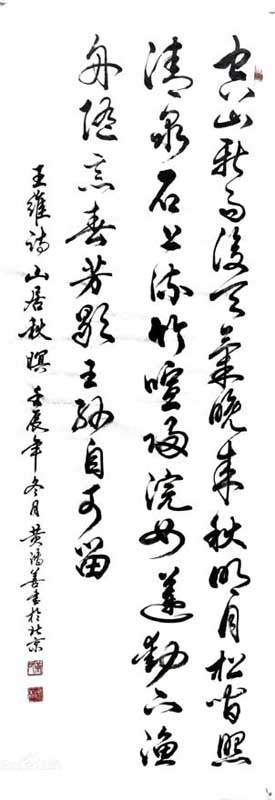 空山新雨後天氣晚來秋明月松間照
清泉石上流竹喧歸浣女蓮動下漁
舟隨意春芳歇王孫自可留
王維詩山居秋暝壬辰年冬月黄善書於北京